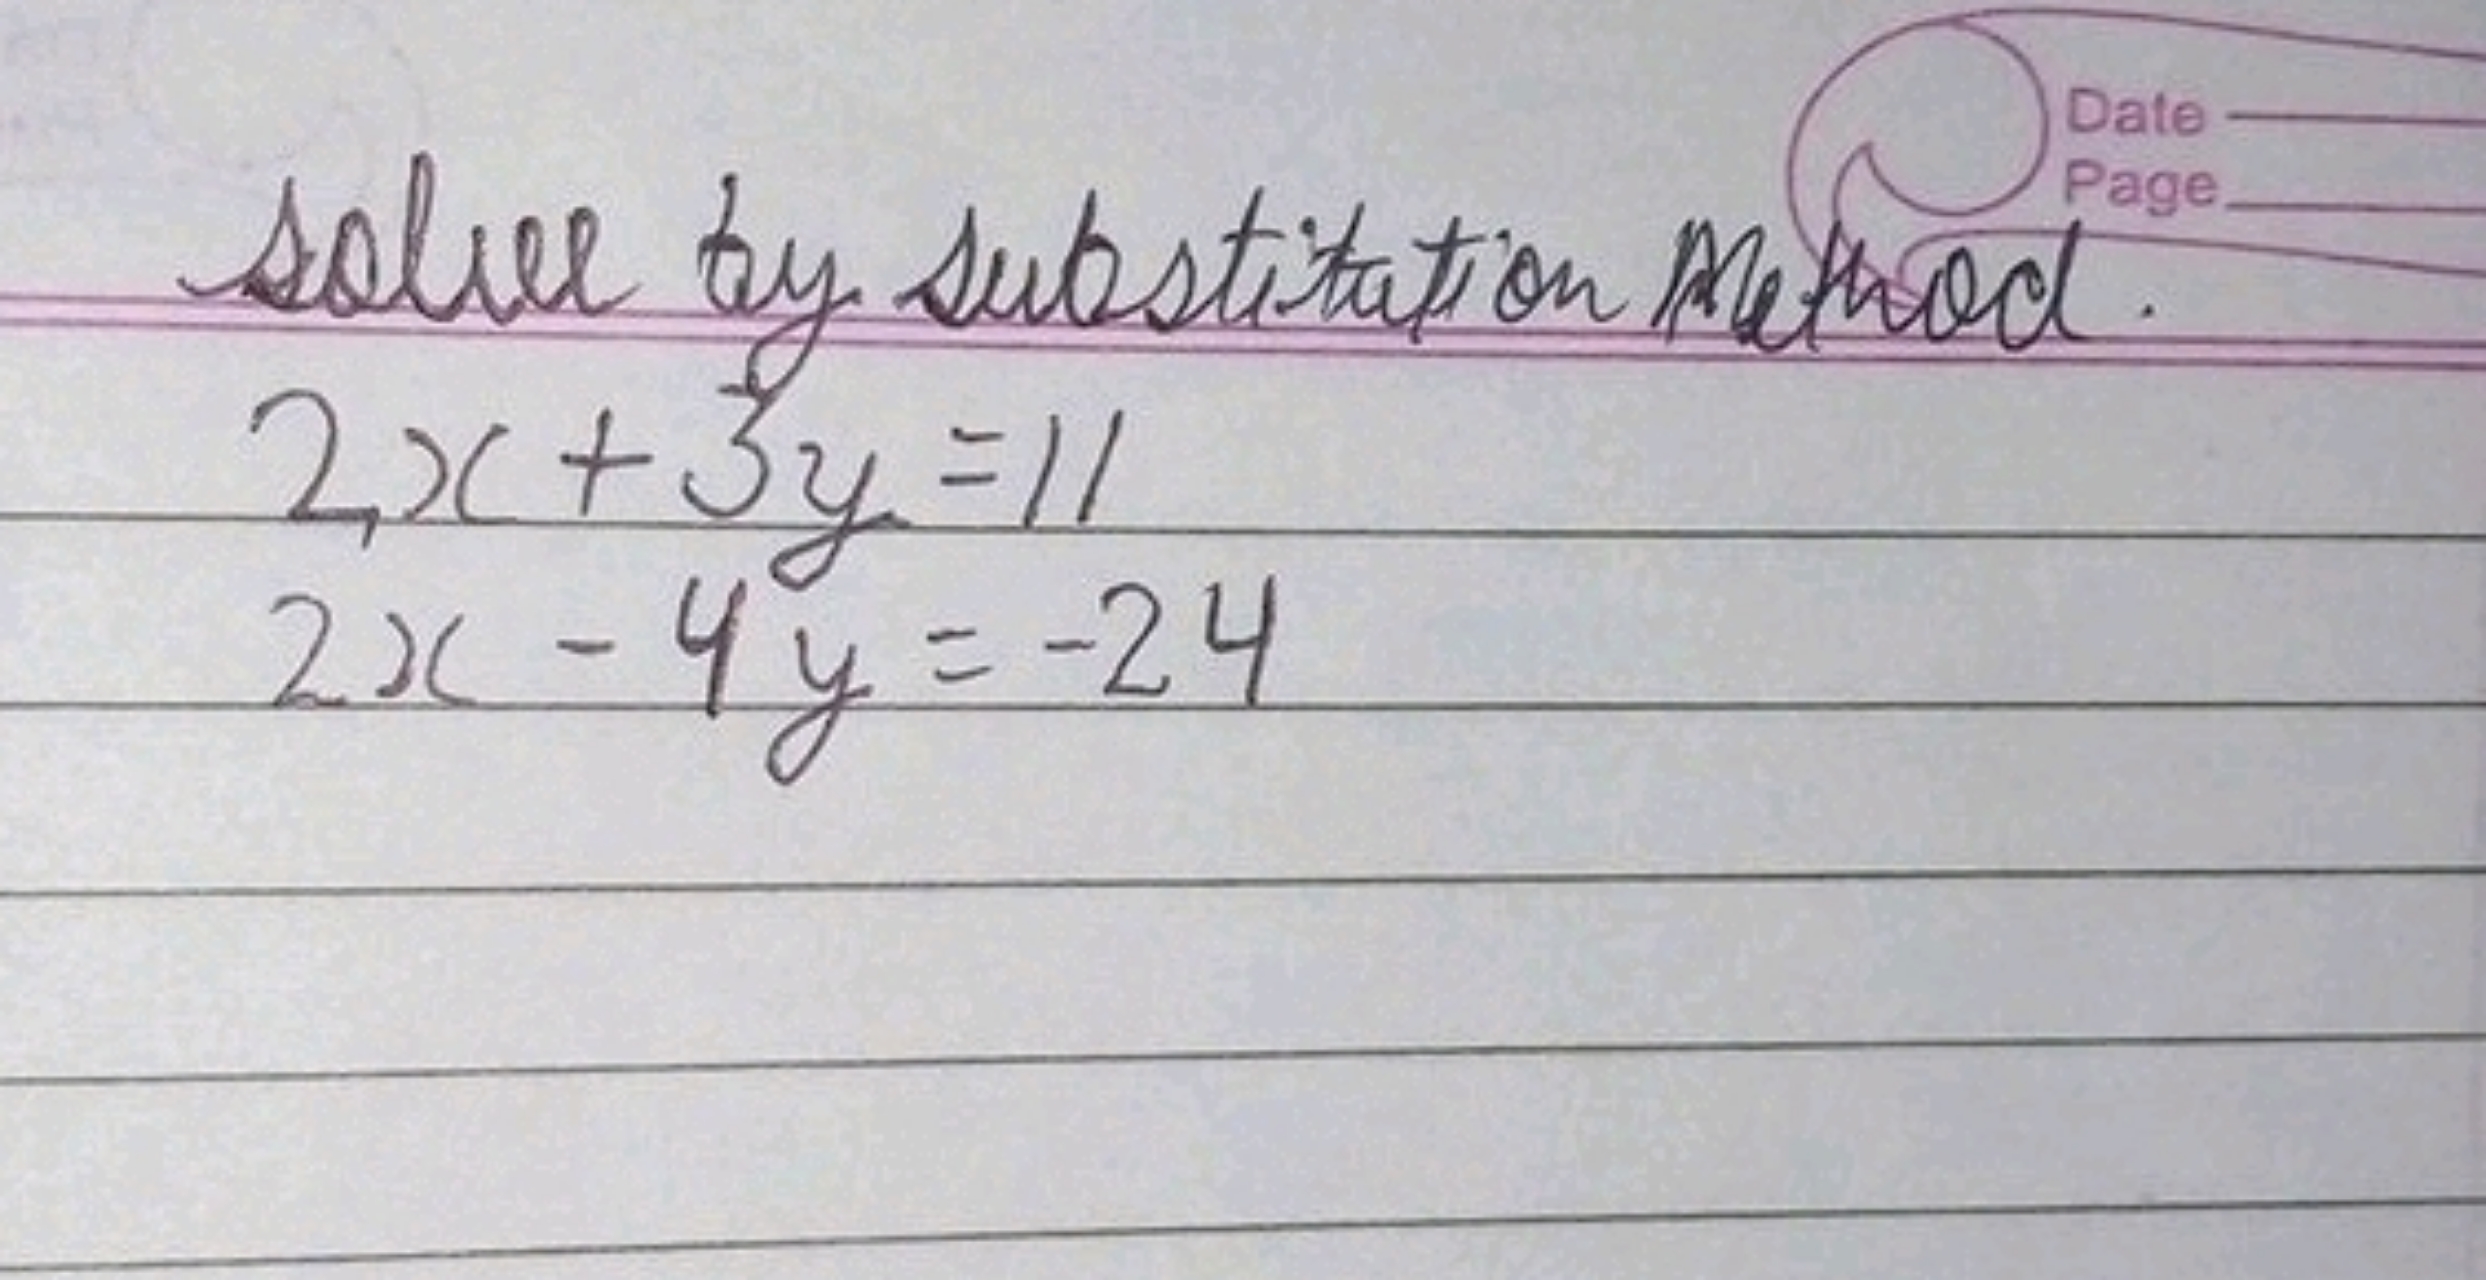 Date
Page
solve by substitution Method.
2x + 3y = 11
2x - 4y = -24